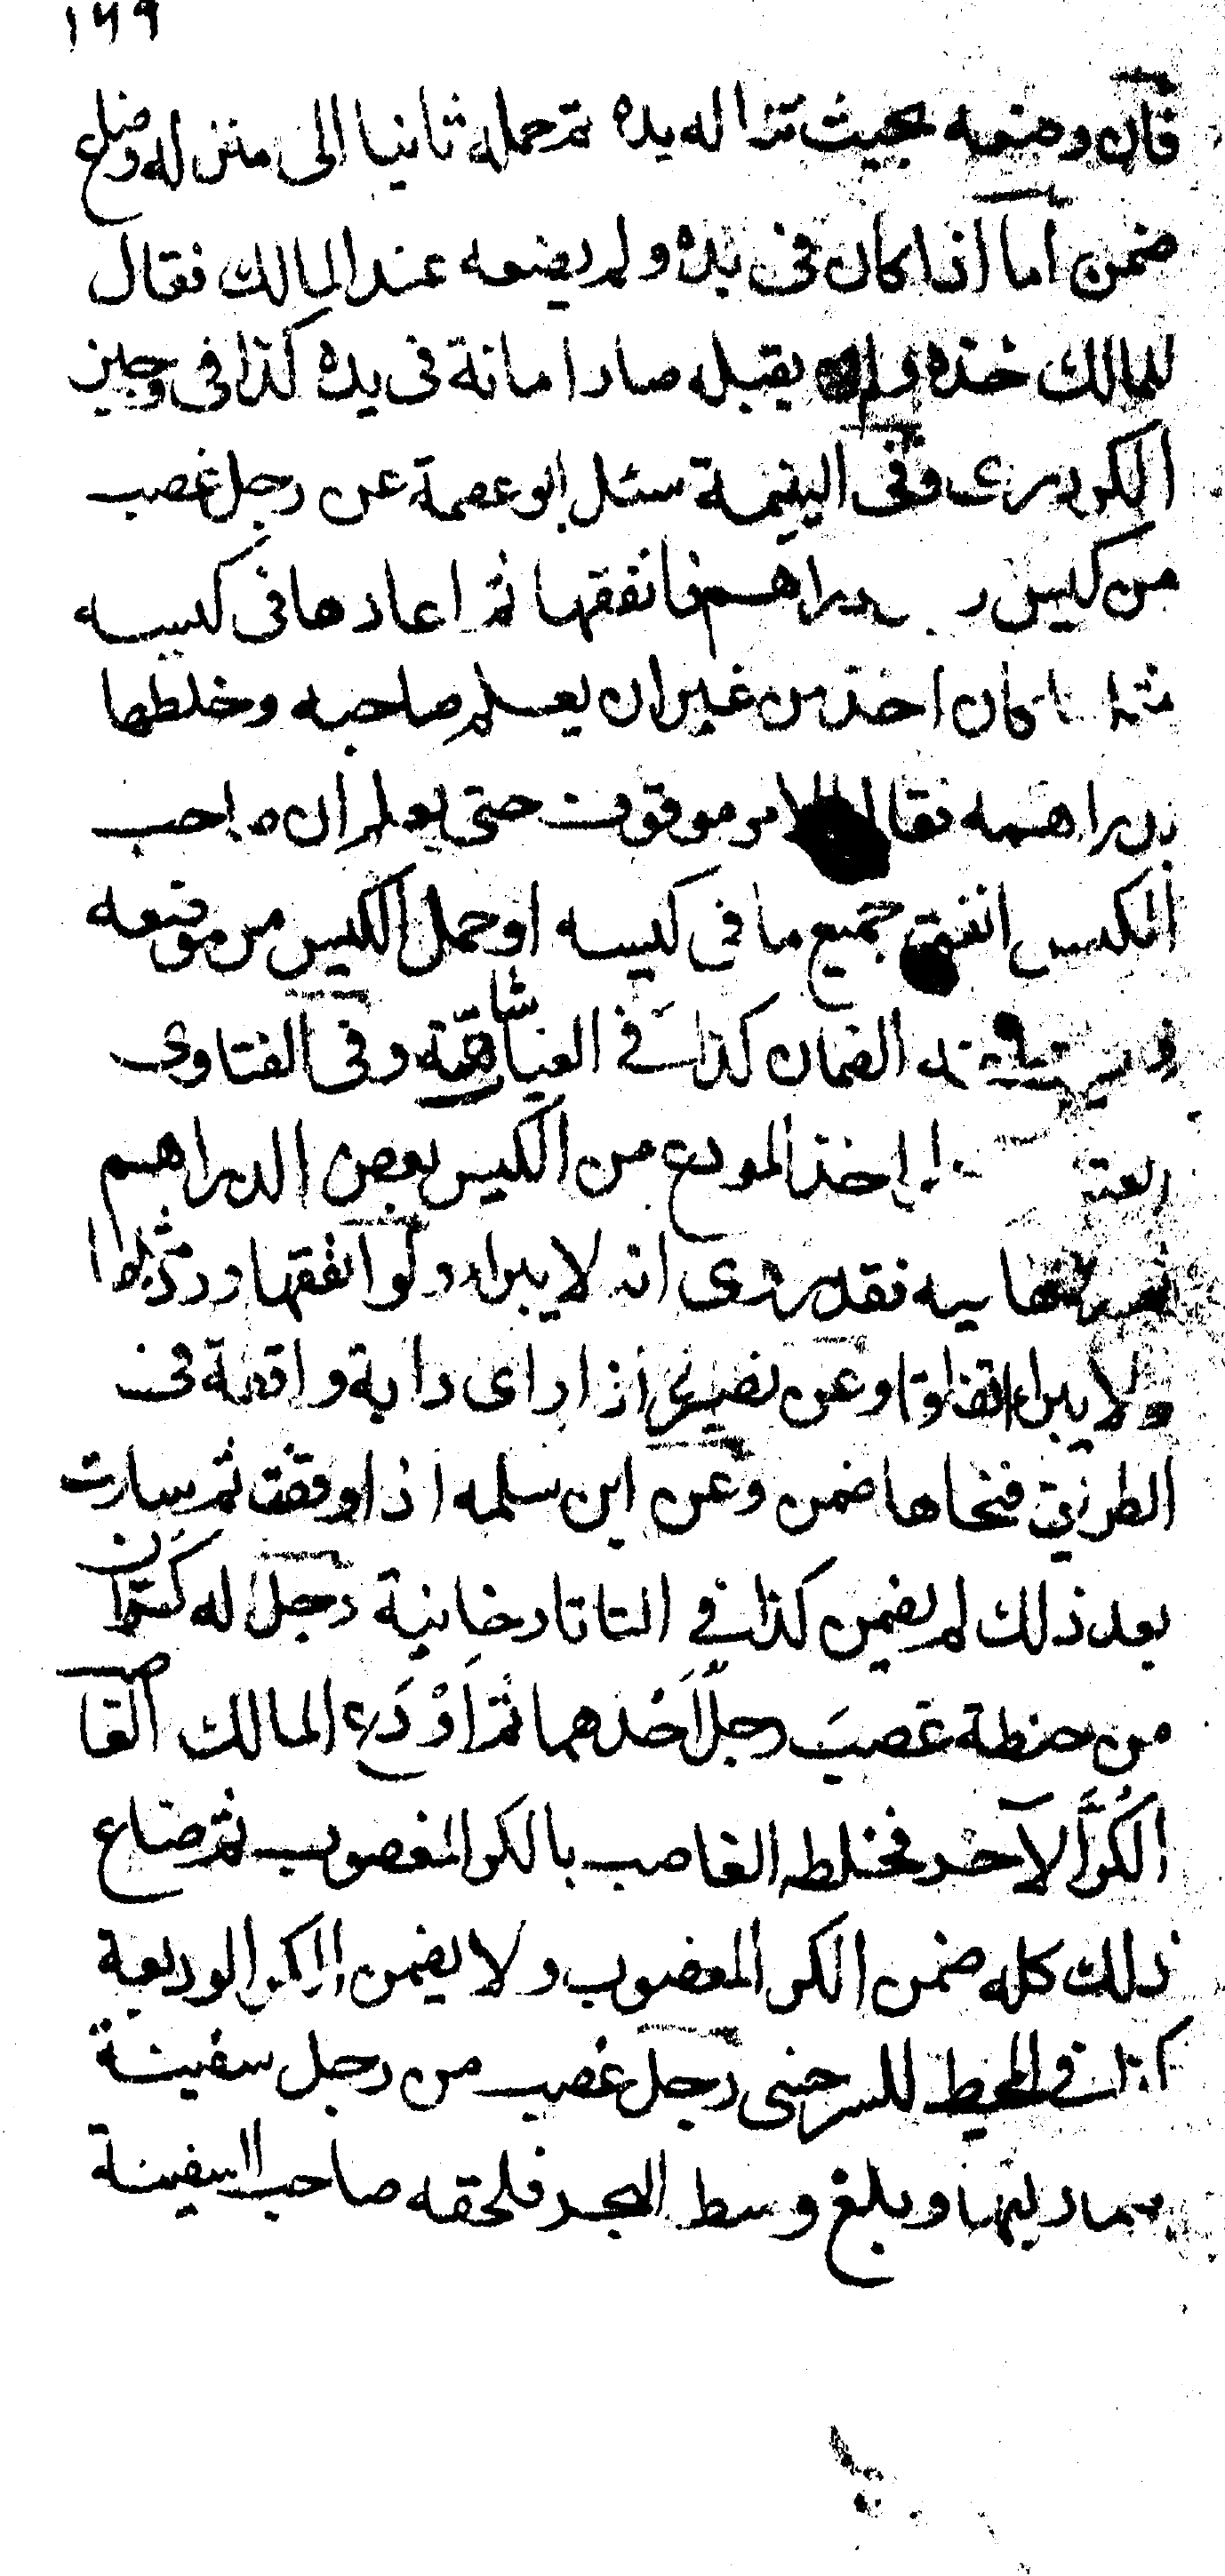 ١٦٩
فان وضعه بحيث تناله يده ثم حمله ثانيا الى منزله وضاع
ضمن اما اذا كان فى يده ولم يضعه عند المالك فقال
للمالك خذه ولم يقبله صار امانة فى يده كذا فى وجيز
الكردرى وفى اليتيمة سئل ابو عصمة عن رجل غصب
من كيس دراهم فانفقها ثم اعادها فى كيسه
كان اخذ من غير ان يعلم صاحبه وخلطها
بدراهمه فقال الامر موقوف حتى يعلم ان صاحب
الكيس انفق جميع ما فى كيسه او حمل الكيس من موضعه
الضمان كذا فى الغياثية وفى الفتاوى
اخذ المودع من الكيس بعض الدراهم
ثم فيه فقد روى انه لا يبرا ولو انفقها ورد مثلها
لا يبرا اتفاقا وعن نصير اذا راى دابة واقعة فى
الطريق فنحاها ضمن وعن ابن سلمه اذا وقفت ثم سارت
بعد ذلك لم يضمن كذا فى التاتارخانية رجل له كران
من حنطة غصب رجل احدهما ثم اودع المالك الغاصب
الكر الآخر فخلطه الغاصب بالكر المغصوب ثم ضاع
ذلك كله ضمن الكر المغصوب ولا يضمن الكر الوديعة
كذا فى المحيط للسرخسى رجل غصب من رجل سفينة
وبلغ وسط البحر فلحقه صاحب السفينة